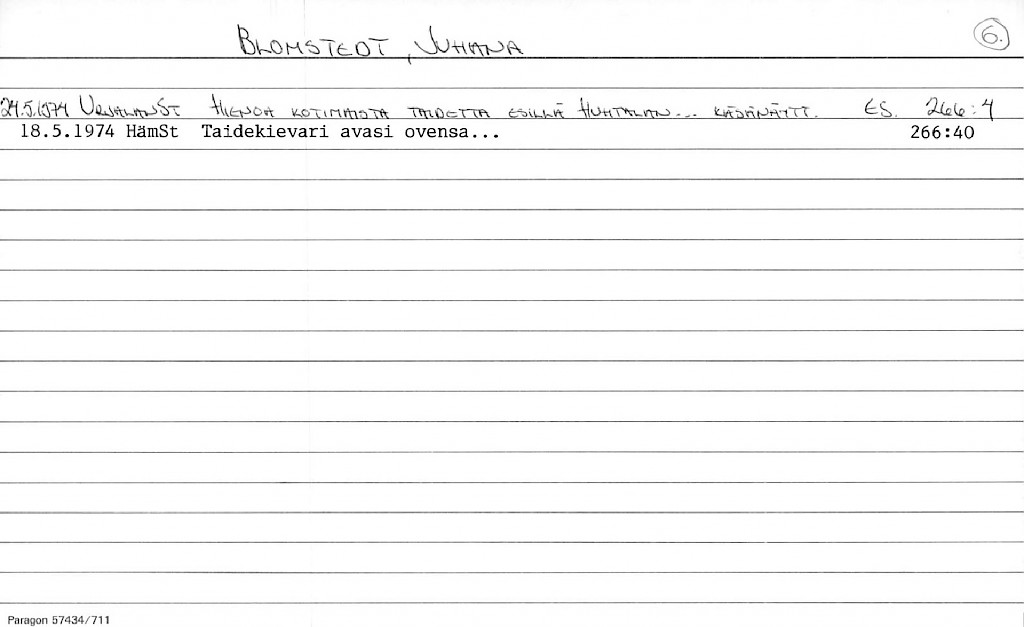 BLOMSTEDT, JUHANA 6.
24.5.1974 URJALANST HIENOA KOTIMAISTA TAIDETTA ESILLÄ HUHTALAN... KESÄNÄYTT. ES. 266:4
18.5.1974 HämSt Taidekievari avasi ovensa... 266:40
Paragon 57434/711